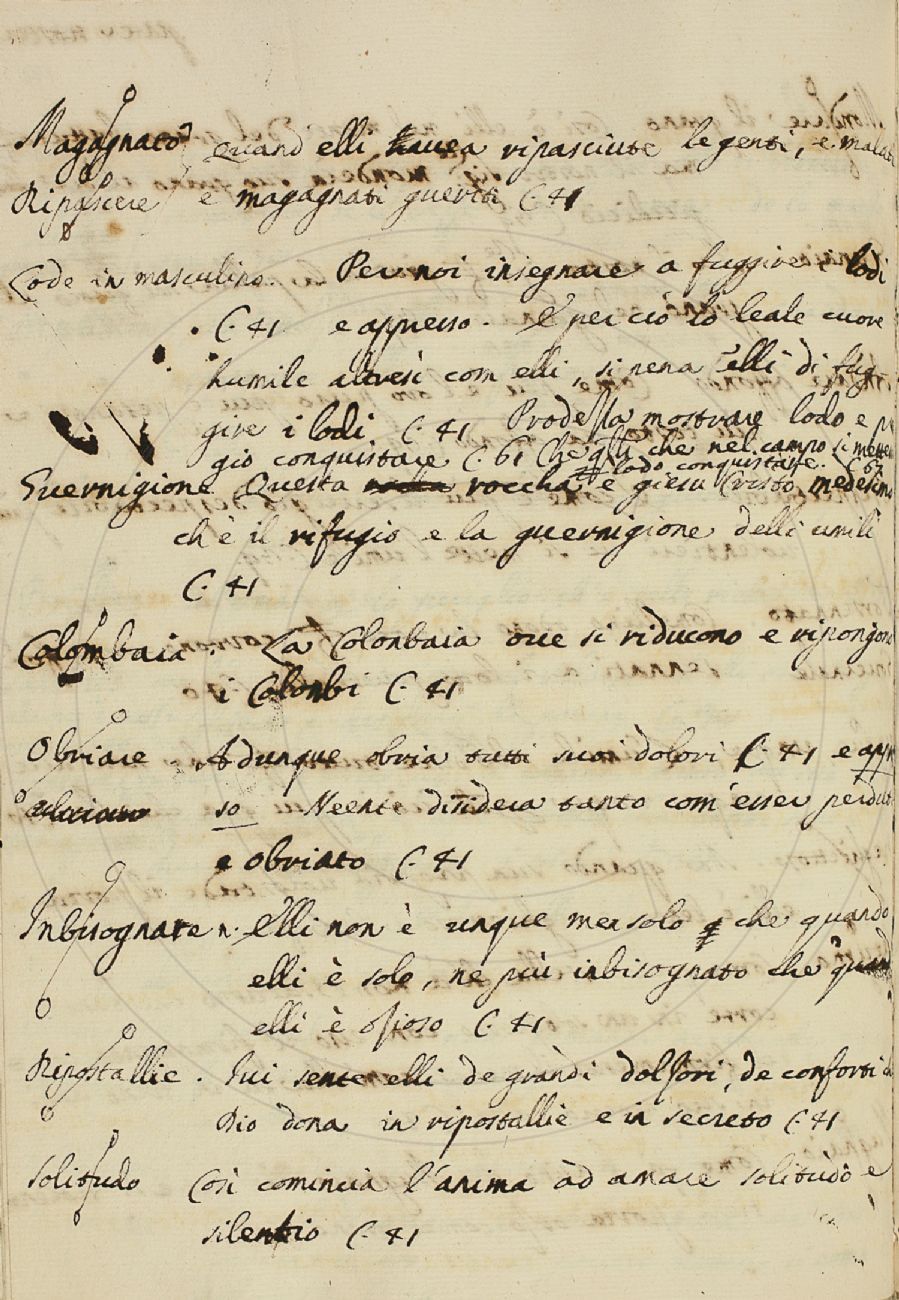 Magagnato Quand elli havea ripasciute le genti, e malati
Ripascere e magagnati gueriti C. 41
Lode in masculino. Per noi insegnare a fuggire i lodi
C. 41 e appresso. E per ciò lo leale cuore
humile altresì com elli, si pena elli di fug
gire i lodi C. 41 Prodezza mostrare lodo e
gio conquistare C. 61 Che gli che nel campo si mette
lodo conquistare. C. 67
Guernigione Questa roccha, è giesu Cristo medesimo
ch'è il rifugio e la guernigione delli umili
C. 41
Colombaia. La Colonbaia ove si riducono e ripongono
i Colonbi C. 41
Obriare Adunque obria tutti suoi dolori C. 41 e appr
so Neente disidera tanto com' esser perduto
e obriato C. 41
Inbisognare n. Elli non è unque men solo che quando
elli è solo, ne più inbisognato che quand
elli è osioso C. 41
Ripostallie. Ivi sente elli de grandi dolsori, de conforti
Dio dona in ripostallie e in secreto C. 41
Solitudo Così comincia l'anima ad amare solitudo e
silentio C. 41